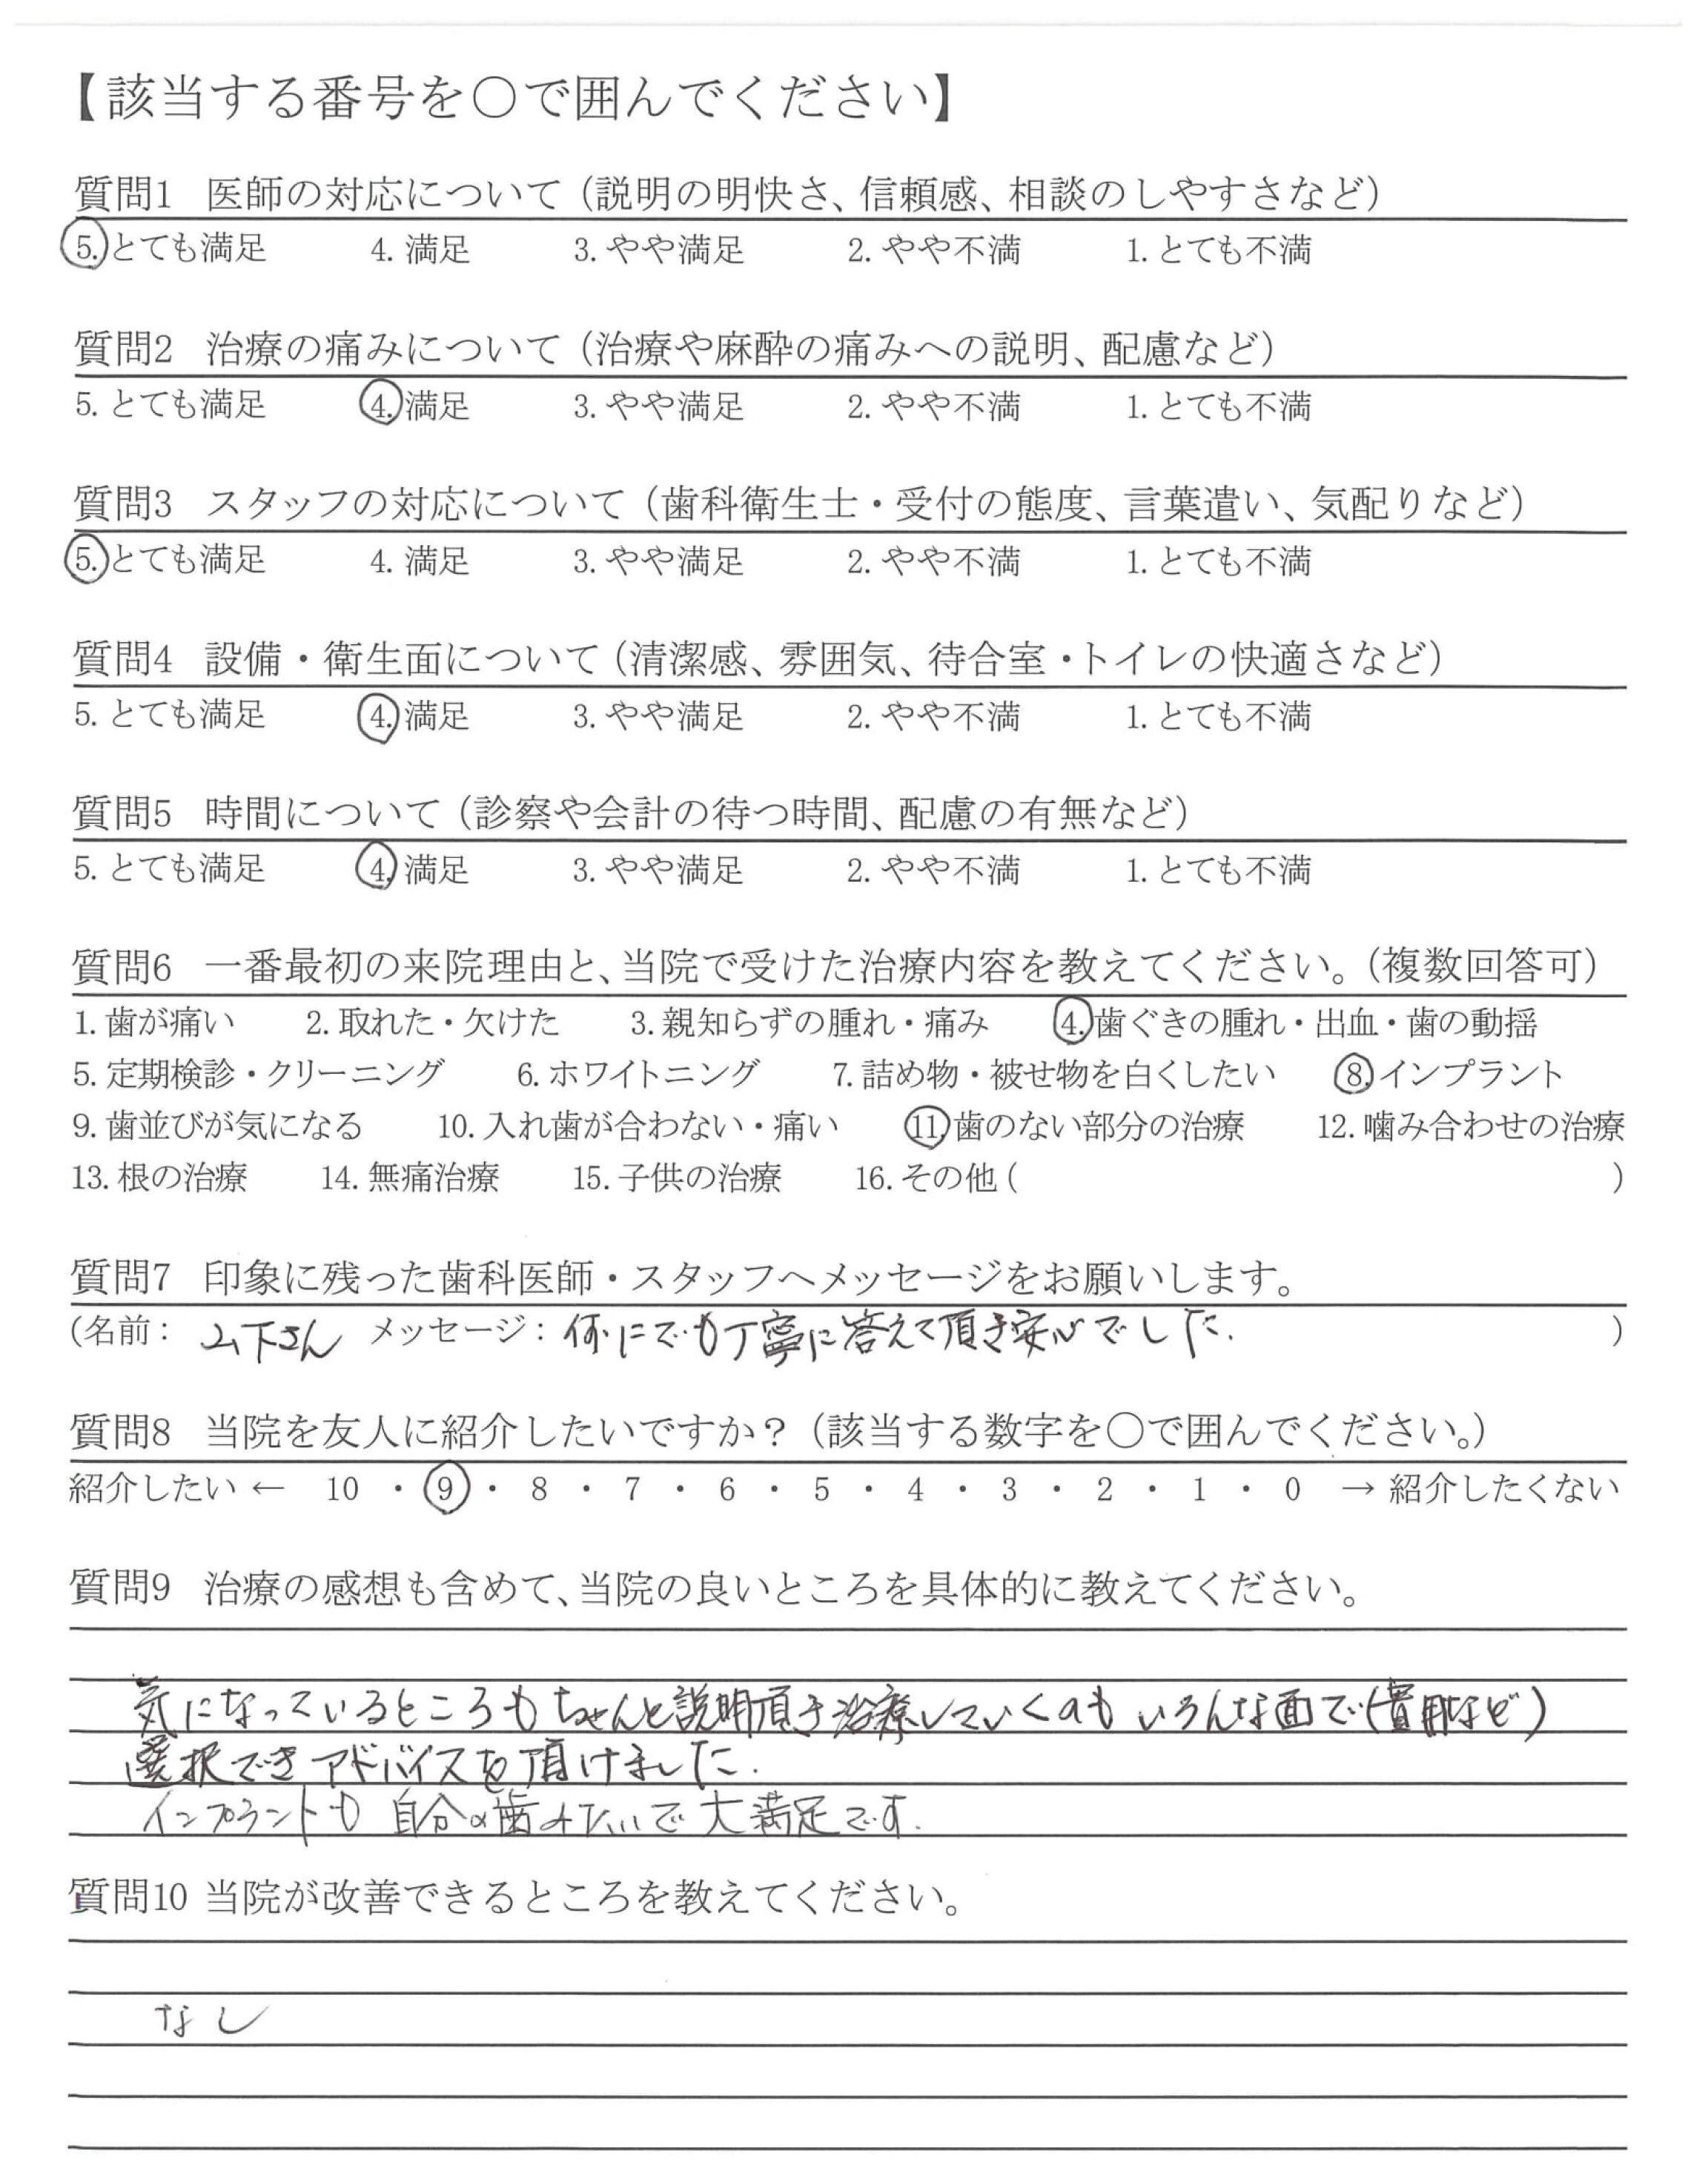 【該当する番号を○で囲んでください】
質問1 医師の対応について（説明の明快さ、信頼感、相談のしやすさなど）
5. とても満足 4. 満足 3. やや満足 2. やや不満 1. とても不満
質問2 治療の痛みについて（治療や麻酔の痛みへの説明、配慮など）
5. とても満足 4. 満足 3. やや満足 2. やや不満 1. とても不満
質問3 スタッフの対応について（歯科衛生士・受付の態度、言葉遣い、気配りなど）
5. とても満足 4. 満足 3. やや満足 2. やや不満 1. とても不満
質問4 設備・衛生面について（清潔感、雰囲気、待合室・トイレの快適さなど）
5. とても満足 4. 満足 3. やや満足 2. やや不満 1. とても不満
質問5 時間について（診察や会計の待つ時間、配慮の有無など）
5. とても満足 4. 満足 3. やや満足 2. やや不満 1. とても不満
質問6 一番最初の来院理由と、当院で受けた治療内容を教えてください。（複数回答可）
1. 歯が痛い 2. 取れた・欠けた 3. 親知らずの腫れ・痛み 4. 歯ぐきの腫れ・出血・歯の動揺
5. 定期検診・クリーニング 6. ホワイトニング 7. 詰め物・被せ物を白くしたい 8. インプラント
9. 歯並びが気になる 10. 入れ歯が合わない・痛い 11. 歯のない部分の治療 12. 噛み合わせの治療
13. 根の治療 14. 無痛治療 15. 子供の治療 16. その他 ( )
質問7 印象に残った歯科医師・スタッフへメッセージをお願いします。
(名前： 山下さん メッセージ： 何にでも丁寧に答えて頂き安心でした. )
質問8 当院を友人に紹介したいですか？（該当する数字を○で囲んでください。）
紹介したい ← 10 ・ 9 ・ 8 ・ 7 ・ 6 ・ 5 ・ 4 ・ 3 ・ 2 ・ 1 ・ 0 → 紹介したくない
質問9 治療の感想も含めて、当院の良いところを具体的に教えてください。
気になっているところもちゃんと説明頂き治療していくのもいろんな面で(費用など)
選択できアドバイスを頂けました.
インプラントも自分の歯みたいで大満足です.
質問10 当院が改善できるところを教えてください。
なし